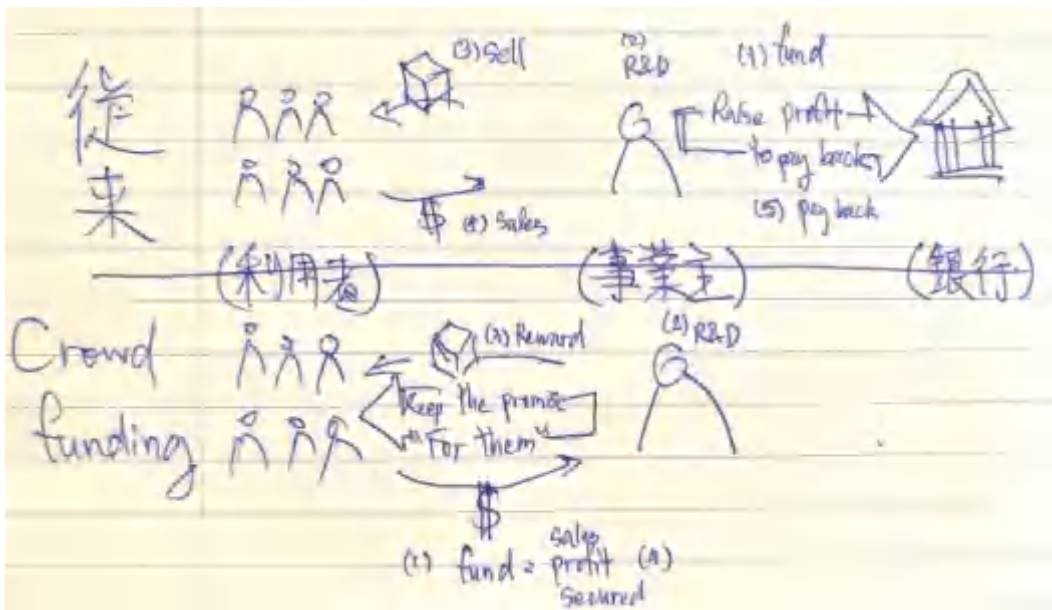 従来
(3) Sell
(2)
R&D
(1) fund
Raise profit
to pay back
(5) pay back
$ (4) Sales
(利用者)
(事業主)
(銀行)
Crowd
funding
(3) Reward
(2) R&D
Keep the promise
"For them"
$
(1) fund = sales
profit (4)
Secured